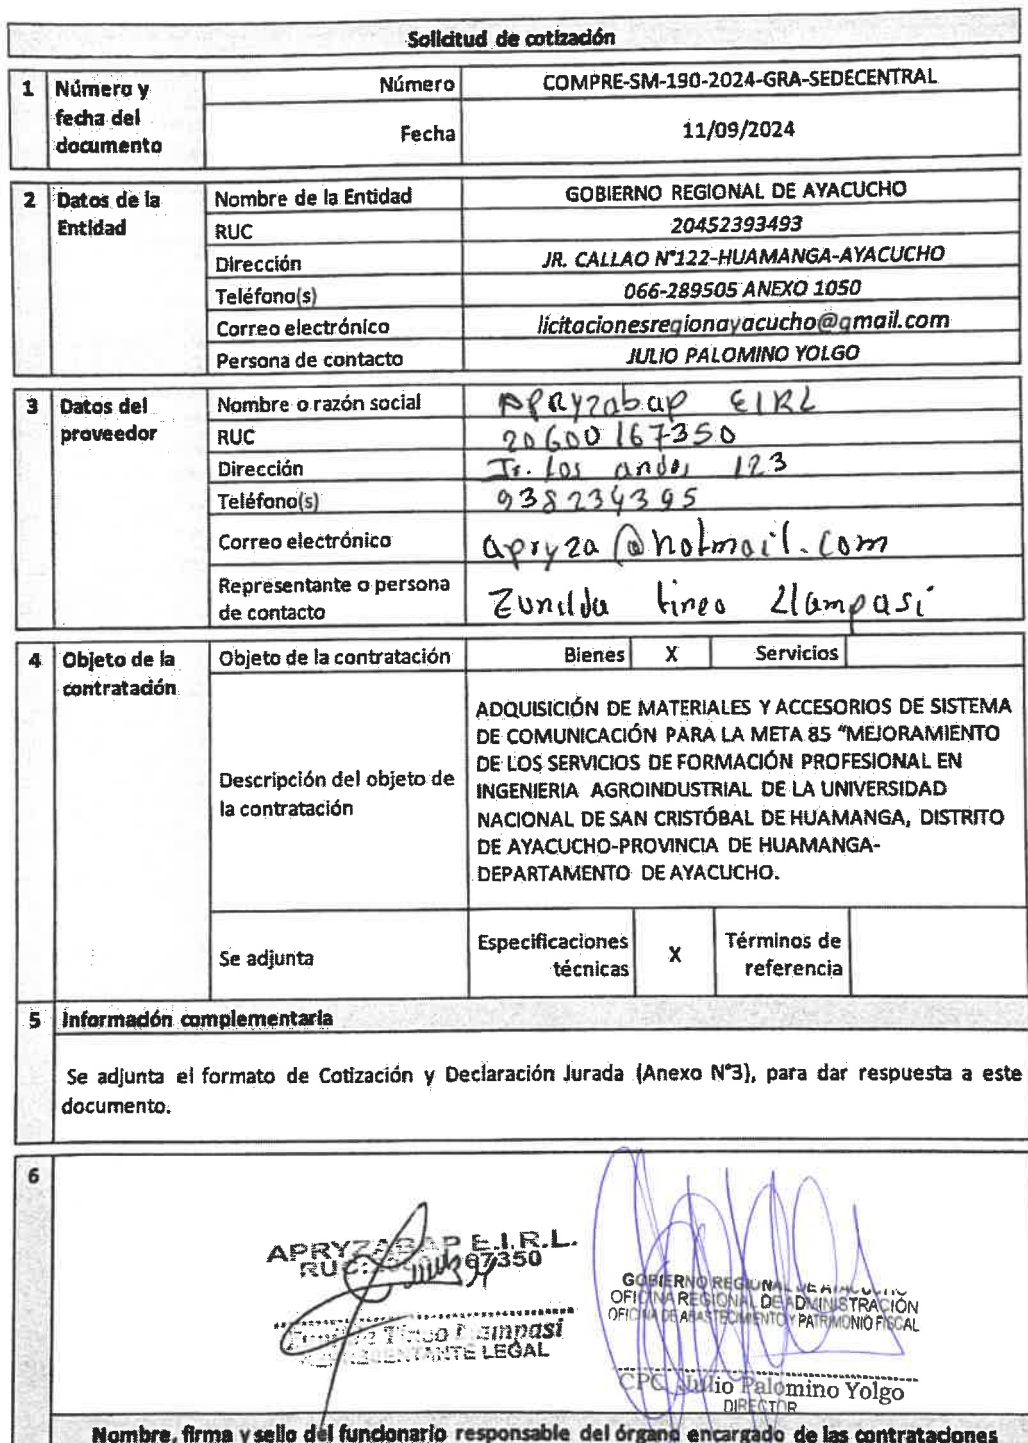 Solicitud de cotización
1 Número y fecha del documento
Número COMPRE-SM-190-2024-GRA-SEDECENTRAL
Fecha 11/09/2024
2 Datos de la Entidad
Nombre de la Entidad GOBIERNO REGIONAL DE AYACUCHO
RUC 20452393493
Dirección JR. CALLAO N°122-HUAMANGA-AYACUCHO
Teléfono(s) 066-289505 ANEXO 1050
Correo electrónico licitacionesregionayacucho@gmail.com
Persona de contacto JULIO PALOMINO YOLGO
3 Datos del proveedor
Nombre o razón social APRyzabap EIRL
RUC 20600167350
Dirección Jr. Los andes 123
Teléfono(s) 938234395
Correo electrónico apryza@hotmail.com
Representante o persona de contacto Zunilda tineo Llampasi
4 Objeto de la contratación
Objeto de la contratación Bienes X Servicios
Descripción del objeto de la contratación
ADQUISICIÓN DE MATERIALES Y ACCESORIOS DE SISTEMA
DE COMUNICACIÓN PARA LA META 85 "MEJORAMIENTO
DE LOS SERVICIOS DE FORMACIÓN PROFESIONAL EN
INGENIERIA AGROINDUSTRIAL DE LA UNIVERSIDAD
NACIONAL DE SAN CRISTÓBAL DE HUAMANGA, DISTRITO
DE AYACUCHO-PROVINCIA DE HUAMANGA-
DEPARTAMENTO DE AYACUCHO.
Se adjunta Especificaciones técnicas X Términos de referencia
5 Información complementaria
Se adjunta el formato de Cotización y Declaración Jurada (Anexo N°3), para dar respuesta a este
documento.
6
APRYZABAP E.I.R.L.
RUC:
Tineo Llampasi
REPRESENTANTE LEGAL
GOBIERNO REGIONAL DE AYACUCHO
OFICINA REGIONAL DE ADMINISTRACIÓN
OFICINA DE ABASTECIMIENTO Y PATRIMONIO FISCAL
CPC. Julio Palomino Yolgo
DIRECTOR
Nombre, firma y sello del funcionario responsable del órgano encargado de las contrataciones